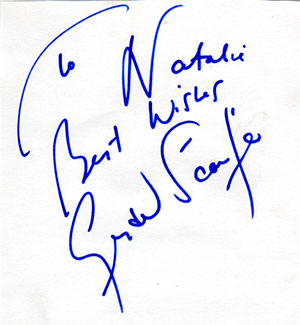 To Natalie
Best Wishes
Gerald Scarfe